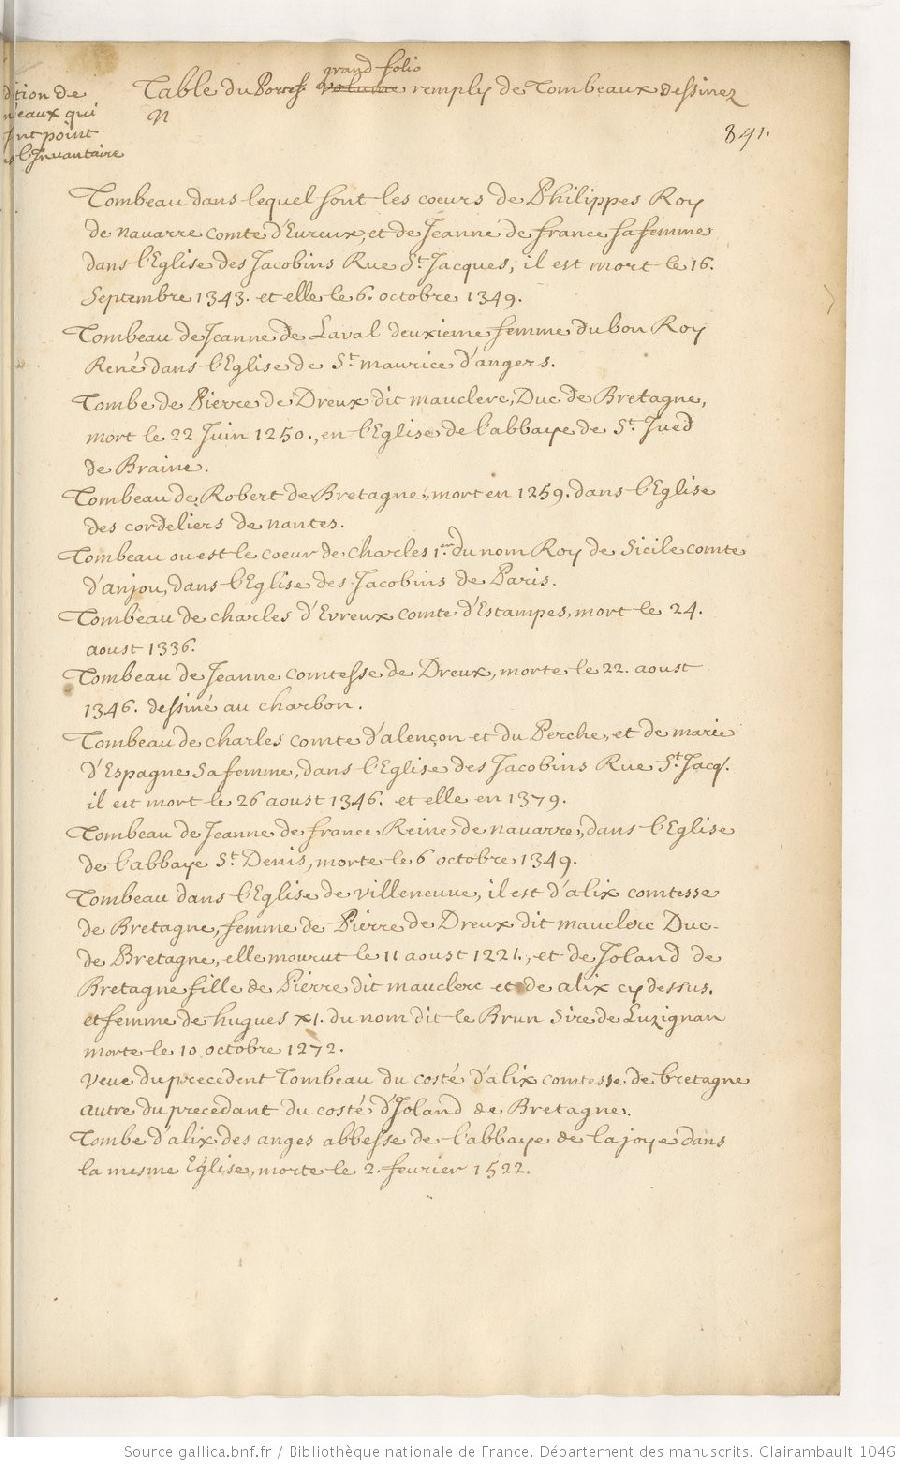 dition de
neaux qui
sont point
l'Inuantaire
grand folio
Table du Portef. volume remply de Tombeaux dessinez
N
891.
Tombeau dans lequel sont les coeurs de Philippes Roy
de navarre comte d'Eureux, et de Jeanne de france sa femme
dans l'Eglise des Jacobins Rue St Jacques, il est mort le 16.
Septembre 1343. et elle le 6. octobre 1349.
Tombeau de Jeanne de Laval deuxieme femme du bon Roy
René dans l'Eglise de St maurice d'angers.
Tombe de Pierre de Dreux dit mauclerc, Duc de Bretagne,
mort le 22 Juin 1250., en l'Eglise de l'abbaye de St Jued
de Braine.
Tombeau de Robert de Bretagne, mort en 1259. dans l'Eglise
des cordeliers de nantes.
Tombeau ou est le coeur de charles 1er du nom Roy de Sicile comte
d'anjou, dans l'Eglise des Jacobins de Paris.
Tombeau de charles d'Evreux comte d'Estampes, mort le 24.
aoust 1336.
Tombeau de Jeanne comtesse de Dreux, morte le 22. aoust
1346. dessiné au charbon.
Tombeau de charles comte d'alençon et du Perche, et de marie
d'Espagne sa femme, dans l'Eglise des Jacobins Rue St Jacq.
il est mort le 26 aoust 1346. et elle en 1379.
Tombeau de Jeanne de france Reine de navarre, dans l'Eglise
de l'abbaye St Denis, morte le 6 octobre 1349.
Tombeau dans l'Eglise de villeneuve, il est d'alix comtesse
de Bretagne, femme de Pierre de Dreux dit mauclerc Duc
de Bretagne, elle mourut le 11 aoust 1221., et de Joland de
Bretagne fille de Pierre dit mauclerc et de alix cy dessus.
et femme de hugues XI. du nom dit le Brun Sire de Luzignan
morte le 10 octobre 1272.
veue du precedent Tombeau du costé d'alix comtesse de bretagne
autre du precedant du costé d'Joland de Bretagne.
Tombe d'alix des anges abbesse de l'abbaye de la joye dans
la mesme Eglise, morte le 2. fevrier 1522.
Source gallica.bnf.fr / Bibliothèque nationale de France. Département des manuscrits. Clairambault 1046